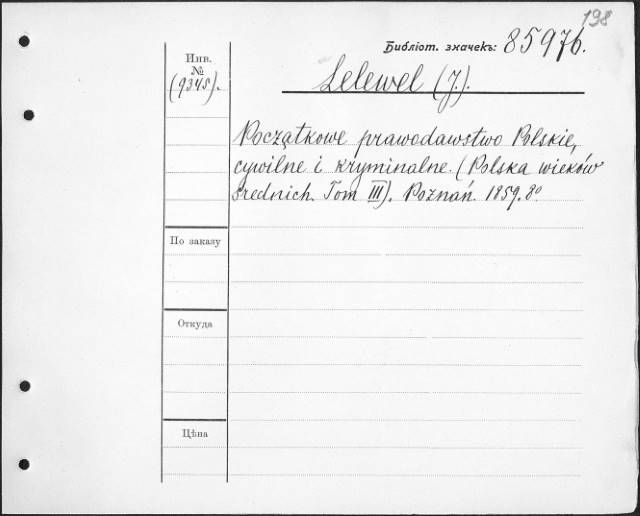 198
Библіот. значекъ: 85976.
Инв.
№
(9345).
Lelewel (J.).
Początkowe prawodawstwo Polskie,
cywilne i kryminalne. (Polska wieków
średnich. Tom III). Poznań. 1859. 8º
По заказу
Откуда
Цѣна